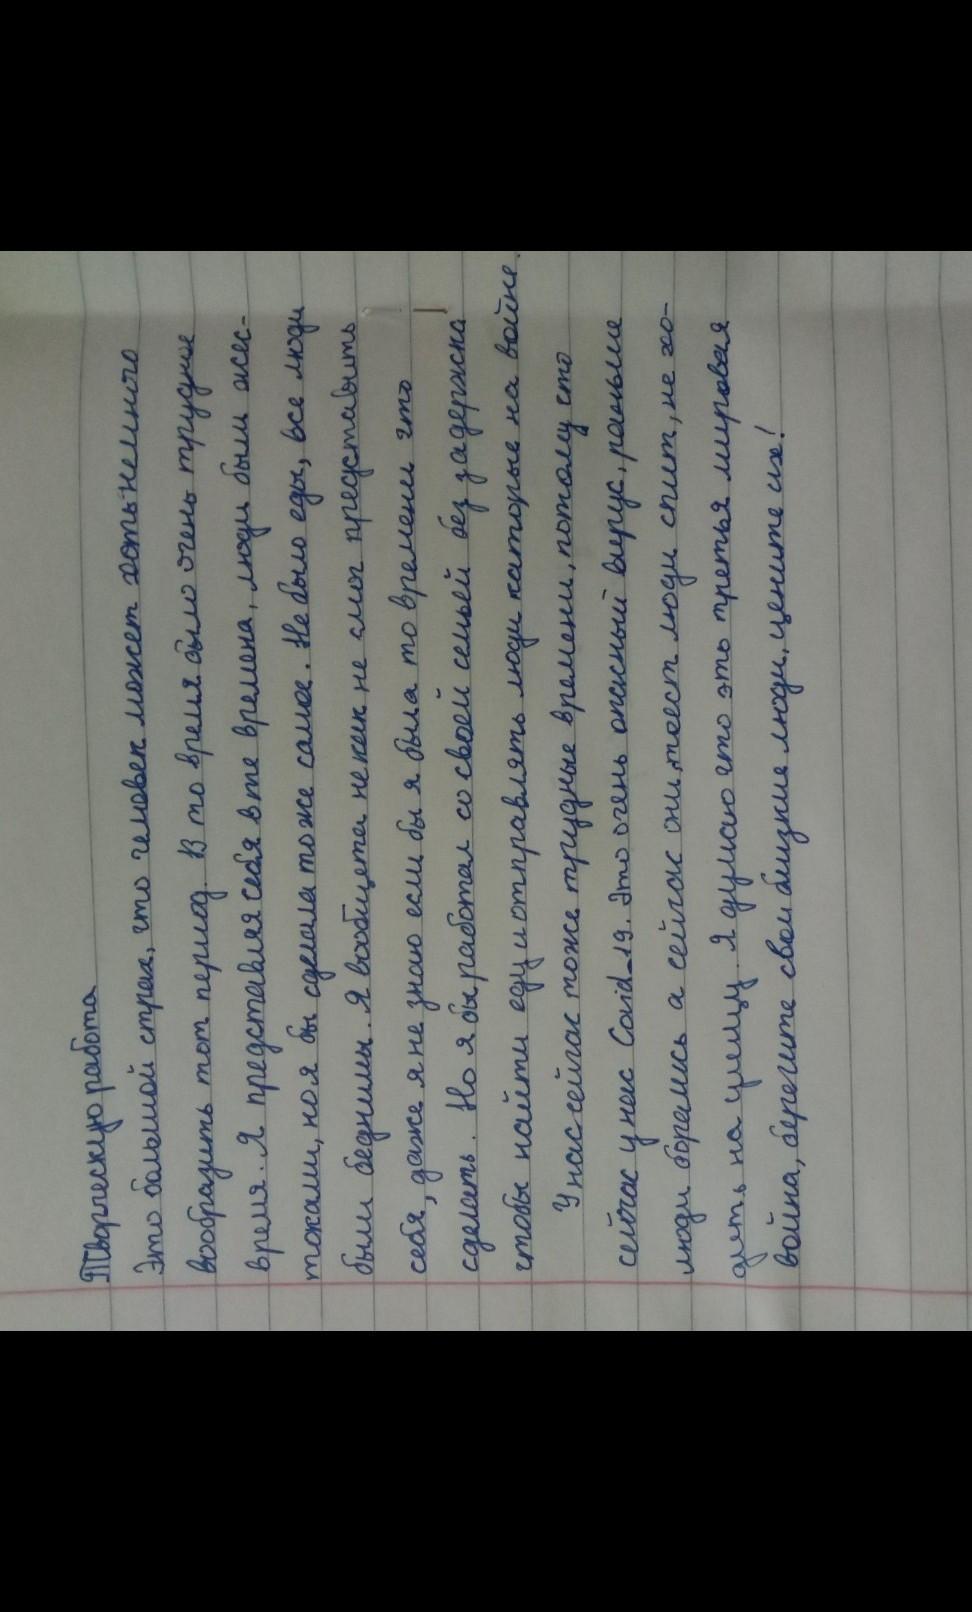 Творческую работа
Это большой страх, что человек может хоть немного
вообразить тот период. В то время было очень трудние
время. Я представляя себя в те времена, люди были жес-
токами, но я бы сделала тоже самое. Не было еды, все люди
были бедными. Я вообщета некак не смог представить
себя, даже я не знаю если бы я была то времени что
сделать. Но я бы работал со своей семьей без задержка
чтобы найти еду и отправлять люди каторые на войне.
У нас сейчас тоже трудные времени, потому что
сейчас у нес Covid-19. Это очень опасный вирус, раньше
люди боремись а сейчас они, тоест люди спит, не хо-
дить на улицу. Я думаю что это третья мировая
война, берегите свои близкие люди, цените их!